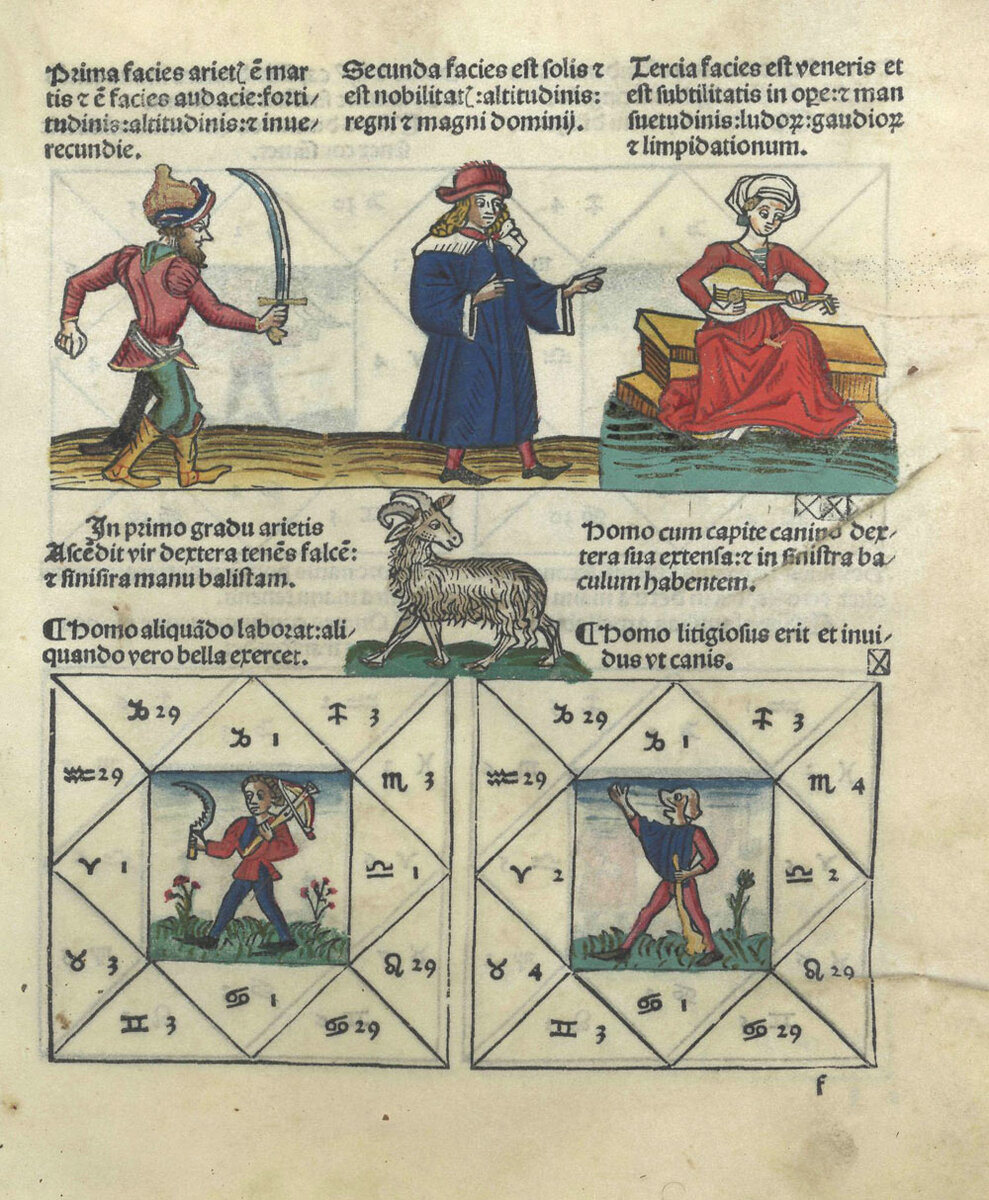 Prima facies arietꝭ ē mar
tis ⁊ ē facies audacie:forti/
tudinis:altitudinis:⁊ inue/
recundie.
Secunda facies est solis ⁊
est nobilitatꝭ:altitudinis:
regni ⁊ magni dominij.
Tercia facies est veneris et
est subtilitatis in oꝑe:⁊ man
suetudinis:ludoꝝ:gaudioꝝ
⁊ limpidationum.
In primo gradu arietis
Ascēdit vir dextera tenēs falcē:
⁊ sinisira manu balistam.
Homo cum capite canino dex/
tera sua extensa:⁊ in sinistra ba/
culum habentem.
¶Homo aliquādo laborat:ali/
quando vero bella exercet.
¶Homo litigiosus erit et inui/
dus vt canis.
♑ 29
♑ 1
♐ 3
♒ 29
♏ 3
♈ 1
♎ 1
♉ 3
♌ 29
♊ 3
♋ 1
♋ 29
♑ 29
♑ 1
♐ 3
♒ 29
♏ 4
♈ 2
♎ 2
♉ 4
♌ 29
♊ 3
♋ 1
♋ 29
f